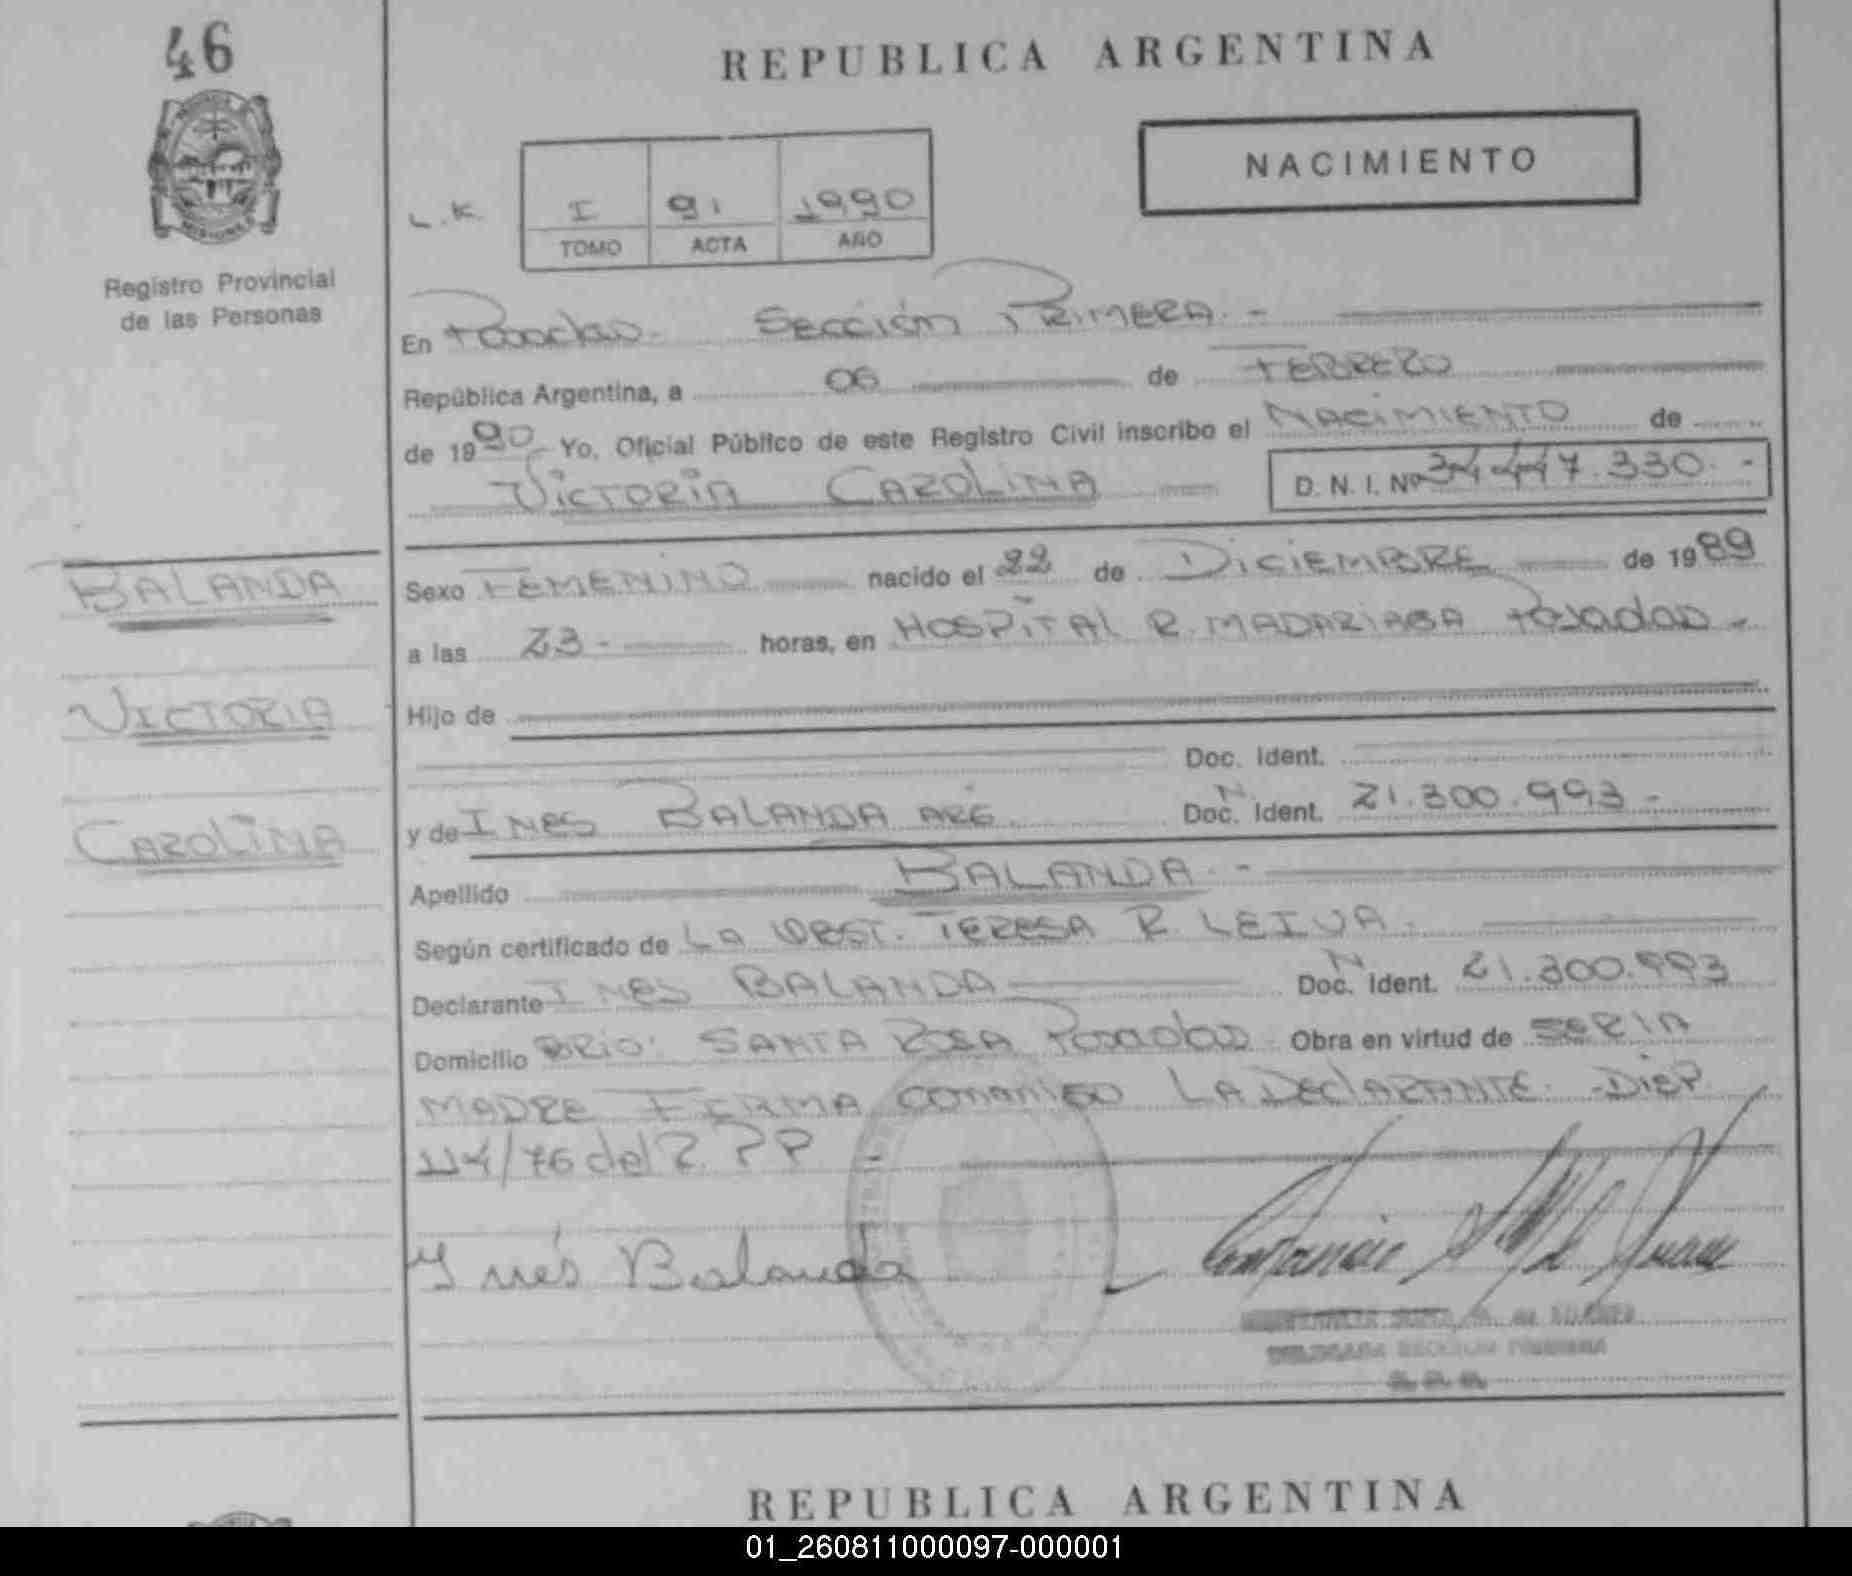 46
REPUBLICA ARGENTINA
NACIMIENTO
L.K. I 91 1990
TOMO ACTA AÑO
Registro Provincial
de las Personas
En Posadas. Sección PRIMERA.-
República Argentina, a 06 de FEBRERO
de 1990 Yo, Oficial Público de este Registro Civil inscribo el NACIMIENTO de
VICTORIA CAROLINA D. N. I. Nº 34.447.330.-
BALANDA
VICTORIA
CAROLINA
Sexo FEMENINO nacido el 22 de DICIEMBRE de 1989
a las 23- horas, en HOSPITAL R. MADARIAGA Posadas-
Hijo de
Doc. Ident.
y de INES BALANDA ARG. Doc. N. Ident. 21.300.993-
Apellido BALANDA.-
Según certificado de LA OBST. TERESA R. LEIVA.
Declarante INES BALANDA Doc. N Ident. 21.300.993
Domicilio BRIO. SANTA ROSA Posadas Obra en virtud de SERIA
MADRE FIRMA conmigo LA DEClARANTE. -Disp
114/76 del R. P P
Inés Balanda
DELEGADA SECCION PRIMERA
R. P. P.
REPUBLICA ARGENTINA
01_260811000097-000001